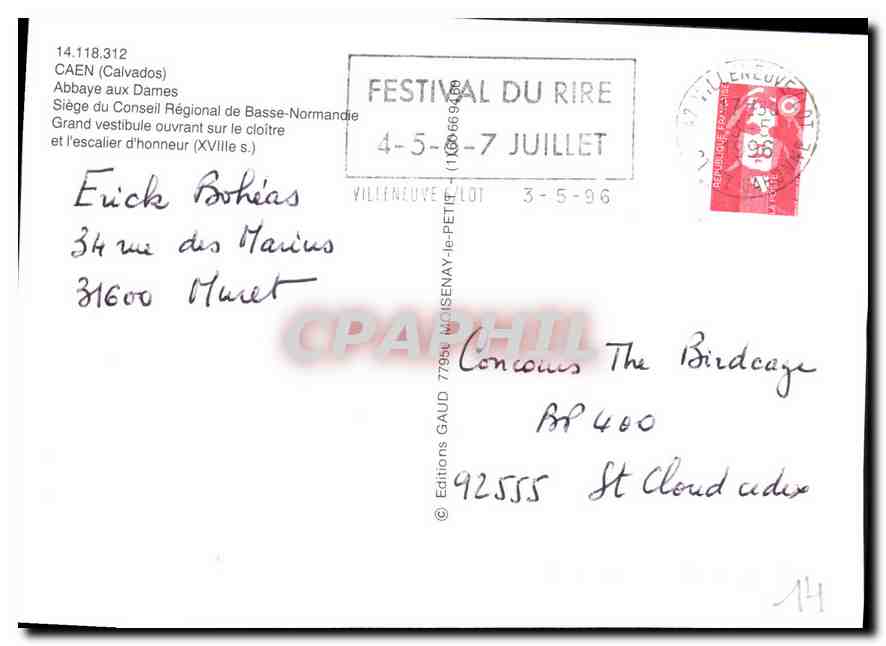 14.118.312
CAEN (Calvados)
Abbaye aux Dames
Siège du Conseil Régional de Basse-Normandie
Grand vestibule ouvrant sur le cloître
et l'escalier d'honneur (XVIIIe s.)
FESTIVAL DU RIRE
4-5-6-7 JUILLET
VILLENEUVE S/LOT 3-5-96
RÉPUBLIQUE FRANÇAISE
LA POSTE
Erick Bohéas
34 rue des Marins
31600 Muret
CPAPHIL
© Editions GAUD 77950 MOISENAY-le-PETIT - (1) 60 66 94 60
Concours The Birdcage
BP 400
92555 St Cloud cedex
14